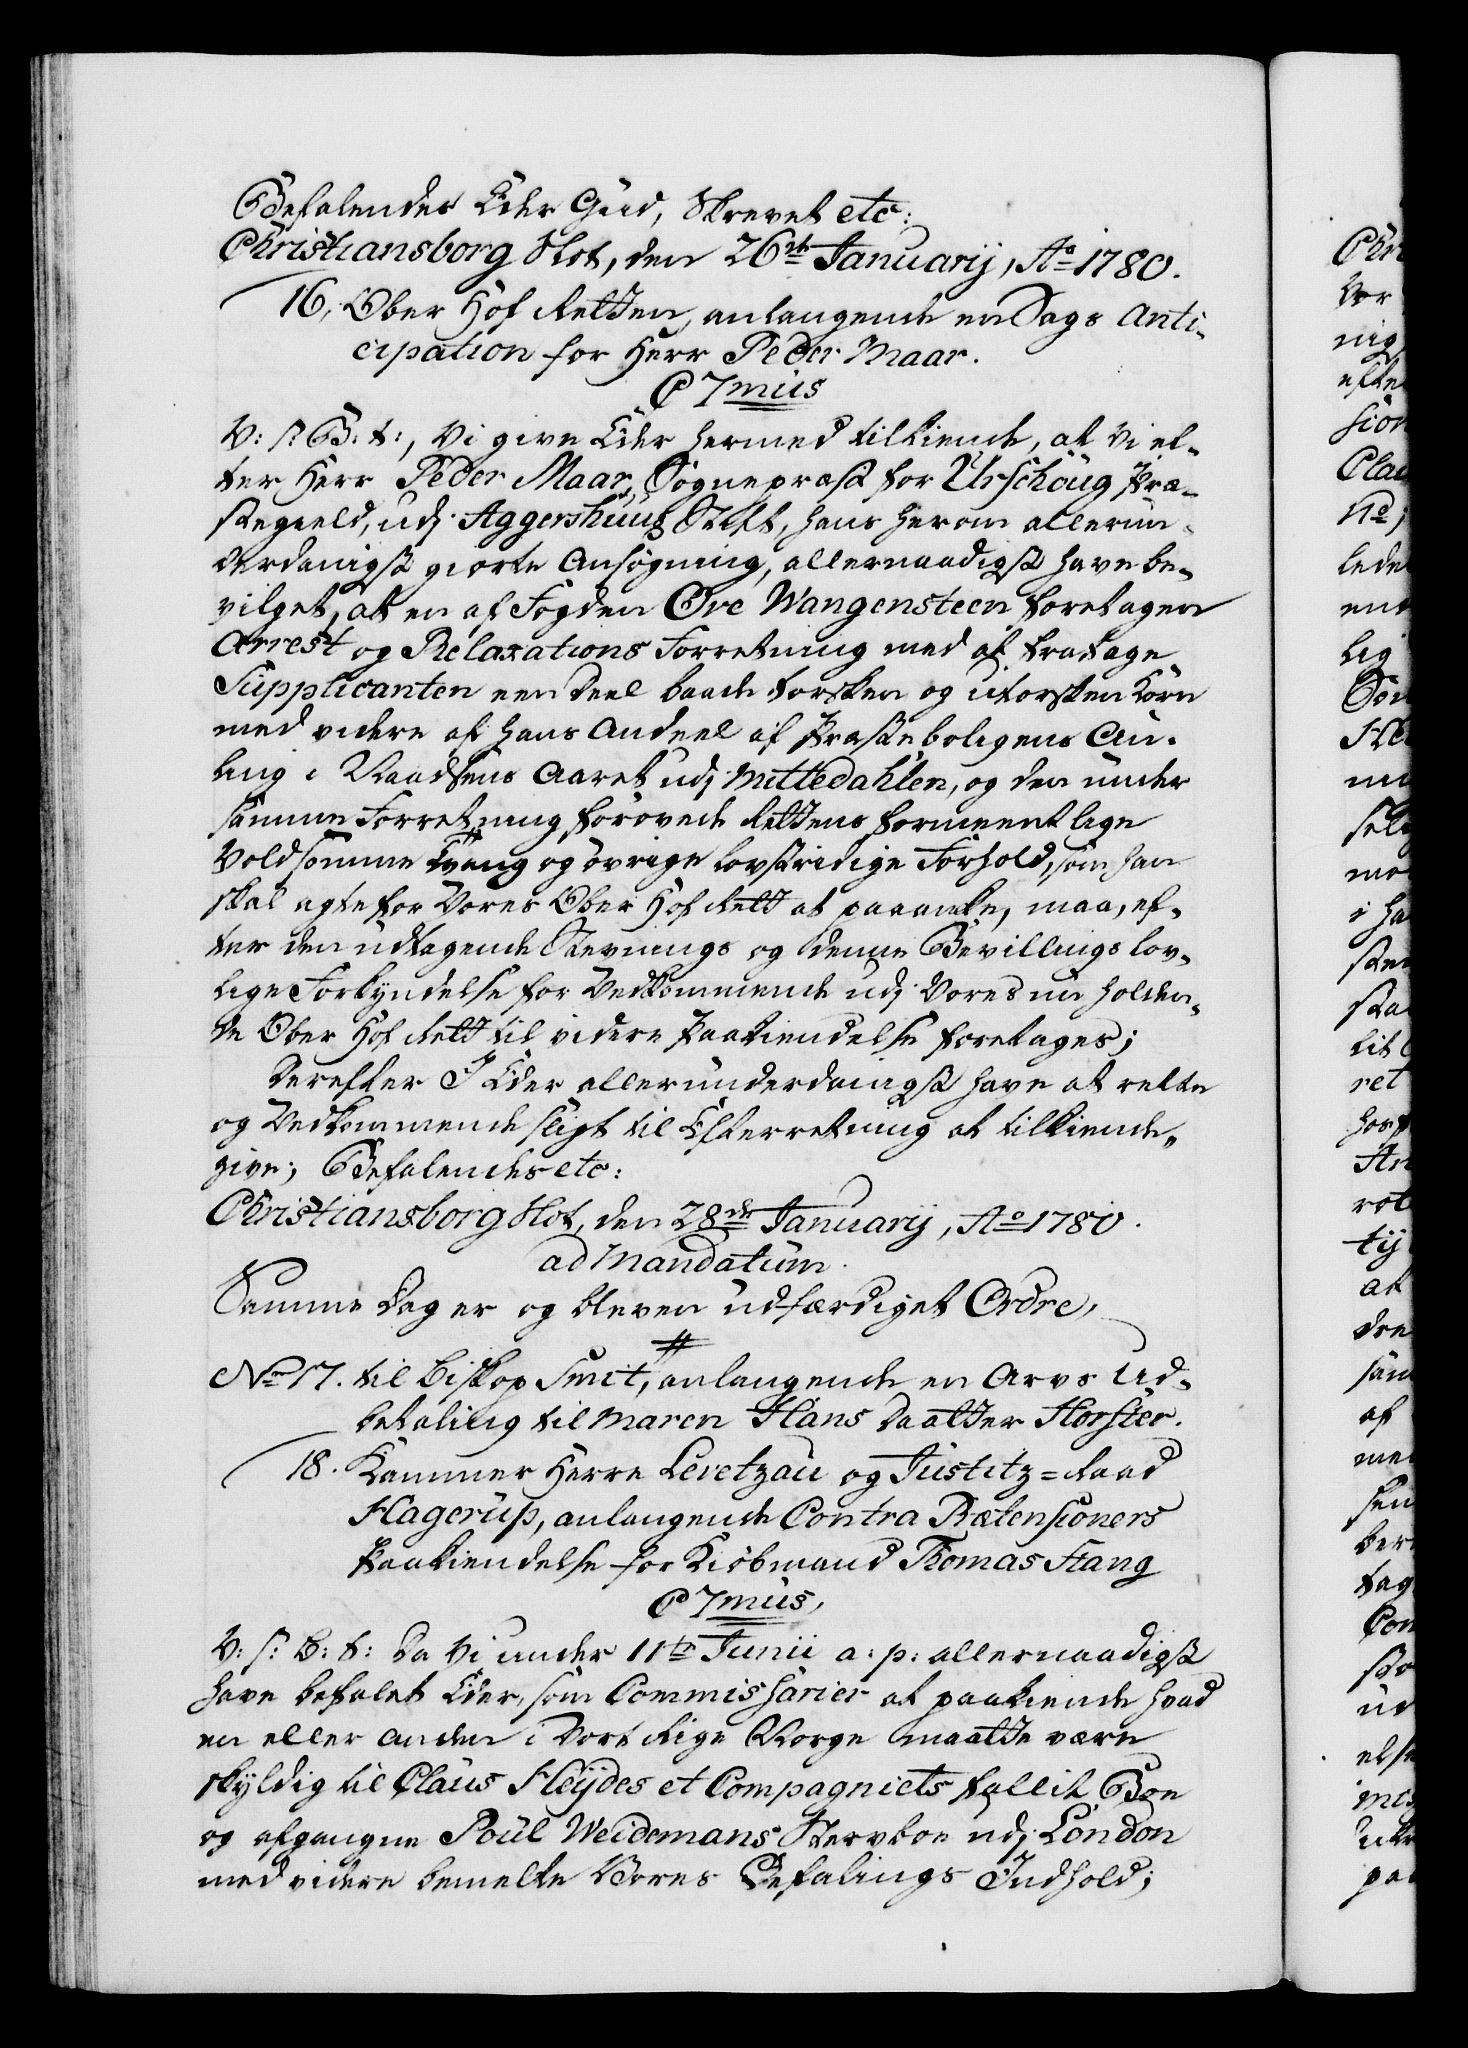 Befalendes Eder Gud, Skrevet etc:
Christiansborg Slot, den 26de Januarij, Ao 1780.
16, Ober Hof Retten, anlangende en Sags Anti-
cipation for Herr Peder Maar.
C 7mus
V: S: G: t:, Vi give Eder hermed tilkiende, at Vi ef-
ter Herr Peder Maar, Sognepræst for Urschoug Præ-
stegield, udj Aggershuus Stift, hans herom allerun-
derdanigst giorte Ansøgning, allernaadigst have be-
vilget, at en af Fogden Ove Wangensteen foretagen
Arrest og Relaxations Forretning med at fratage
Supplicanten een Deel baade torsken og utorsken Korn
med videre af hans Andeel af Præsteboligens Au-
ling i Naadsens Aaret udj Mittedahlen, og den under
samme Forretning forøvede Rettens formeentlige
Voldsomme Tvang og øvrige lovstridige Forhold, som han
skal agte for Vores Ober Hof Rett at paaanke, maa, ef-
ter den udtagende Stevnings og denne Bevillings lov-
lige Forkyndelse for Vedkommende udj Vores nu holden-
de Ober Hof Rett til videre Paakiendelse foretages;
Derefter I Eder allerunderdanigst have at rette
og Vedkommende sligt til Efterretning at tilkiende-
give; Befalendes etc:
Christiansborg Slot, den 28de Januarij, Ao 1780.
ad Mandatum.
Samme Dag er og bleven udfærdiget Ordre,
No 17. til Biskop Smit, anlangende en Arvs Ud-
betaling til Maren Hans Daatter Horster.
18. Kammer Herre Levetzau og Justitz-Raad
Hagerup, anlangende Contra Prætensioners
Paakiendelse for Kiøbmand Thomas Stang
C 7mus,
V: S: G: t: Da Vi under 11te Junii a: p: allernaadigst
have befalet Eder, som Commissarier at paakiende hvad
en eller anden i Vort Rige Norge maatte være
skyldig til Claus Heijdes et Compagniets fallit Boe
og afgangne Poul Weidemans Stervboe udj London
med videre bemelte Vores Befalings Indhold;